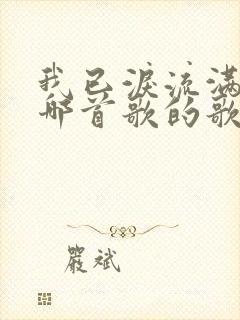 我已淚流滿
哪首歌的歌
嚴斌